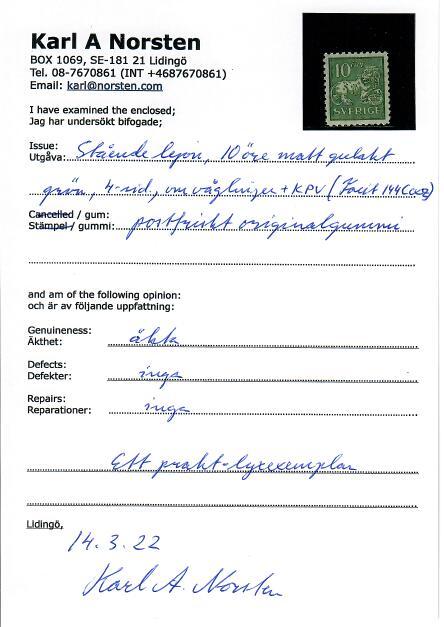 Karl A Norsten
BOX 1069, SE-181 21 Lidingö
Tel. 08-7670861 (INT +4687670861)
Email: karl@norsten.com
10 ÖRE
SVERIGE
I have examined the enclosed;
Jag har undersökt bifogade;
Issue:
Utgåva: Stående lejon, 10 öre matt gulakt
grön, 4-sid, vm våglinjer + KPV (Facit 144C
Cancelled / gum:
Stämpel / gummi: postfriskt originalgummi
and am of the following opinion:
och är av följande uppfattning:
Genuineness:
Äkthet: äkta
Defects:
Defekter: inga
Repairs:
Reparationer: inga
Ett prakt-lyxexemplar
Lidingö,
14.3.22
Karl A. Norsten